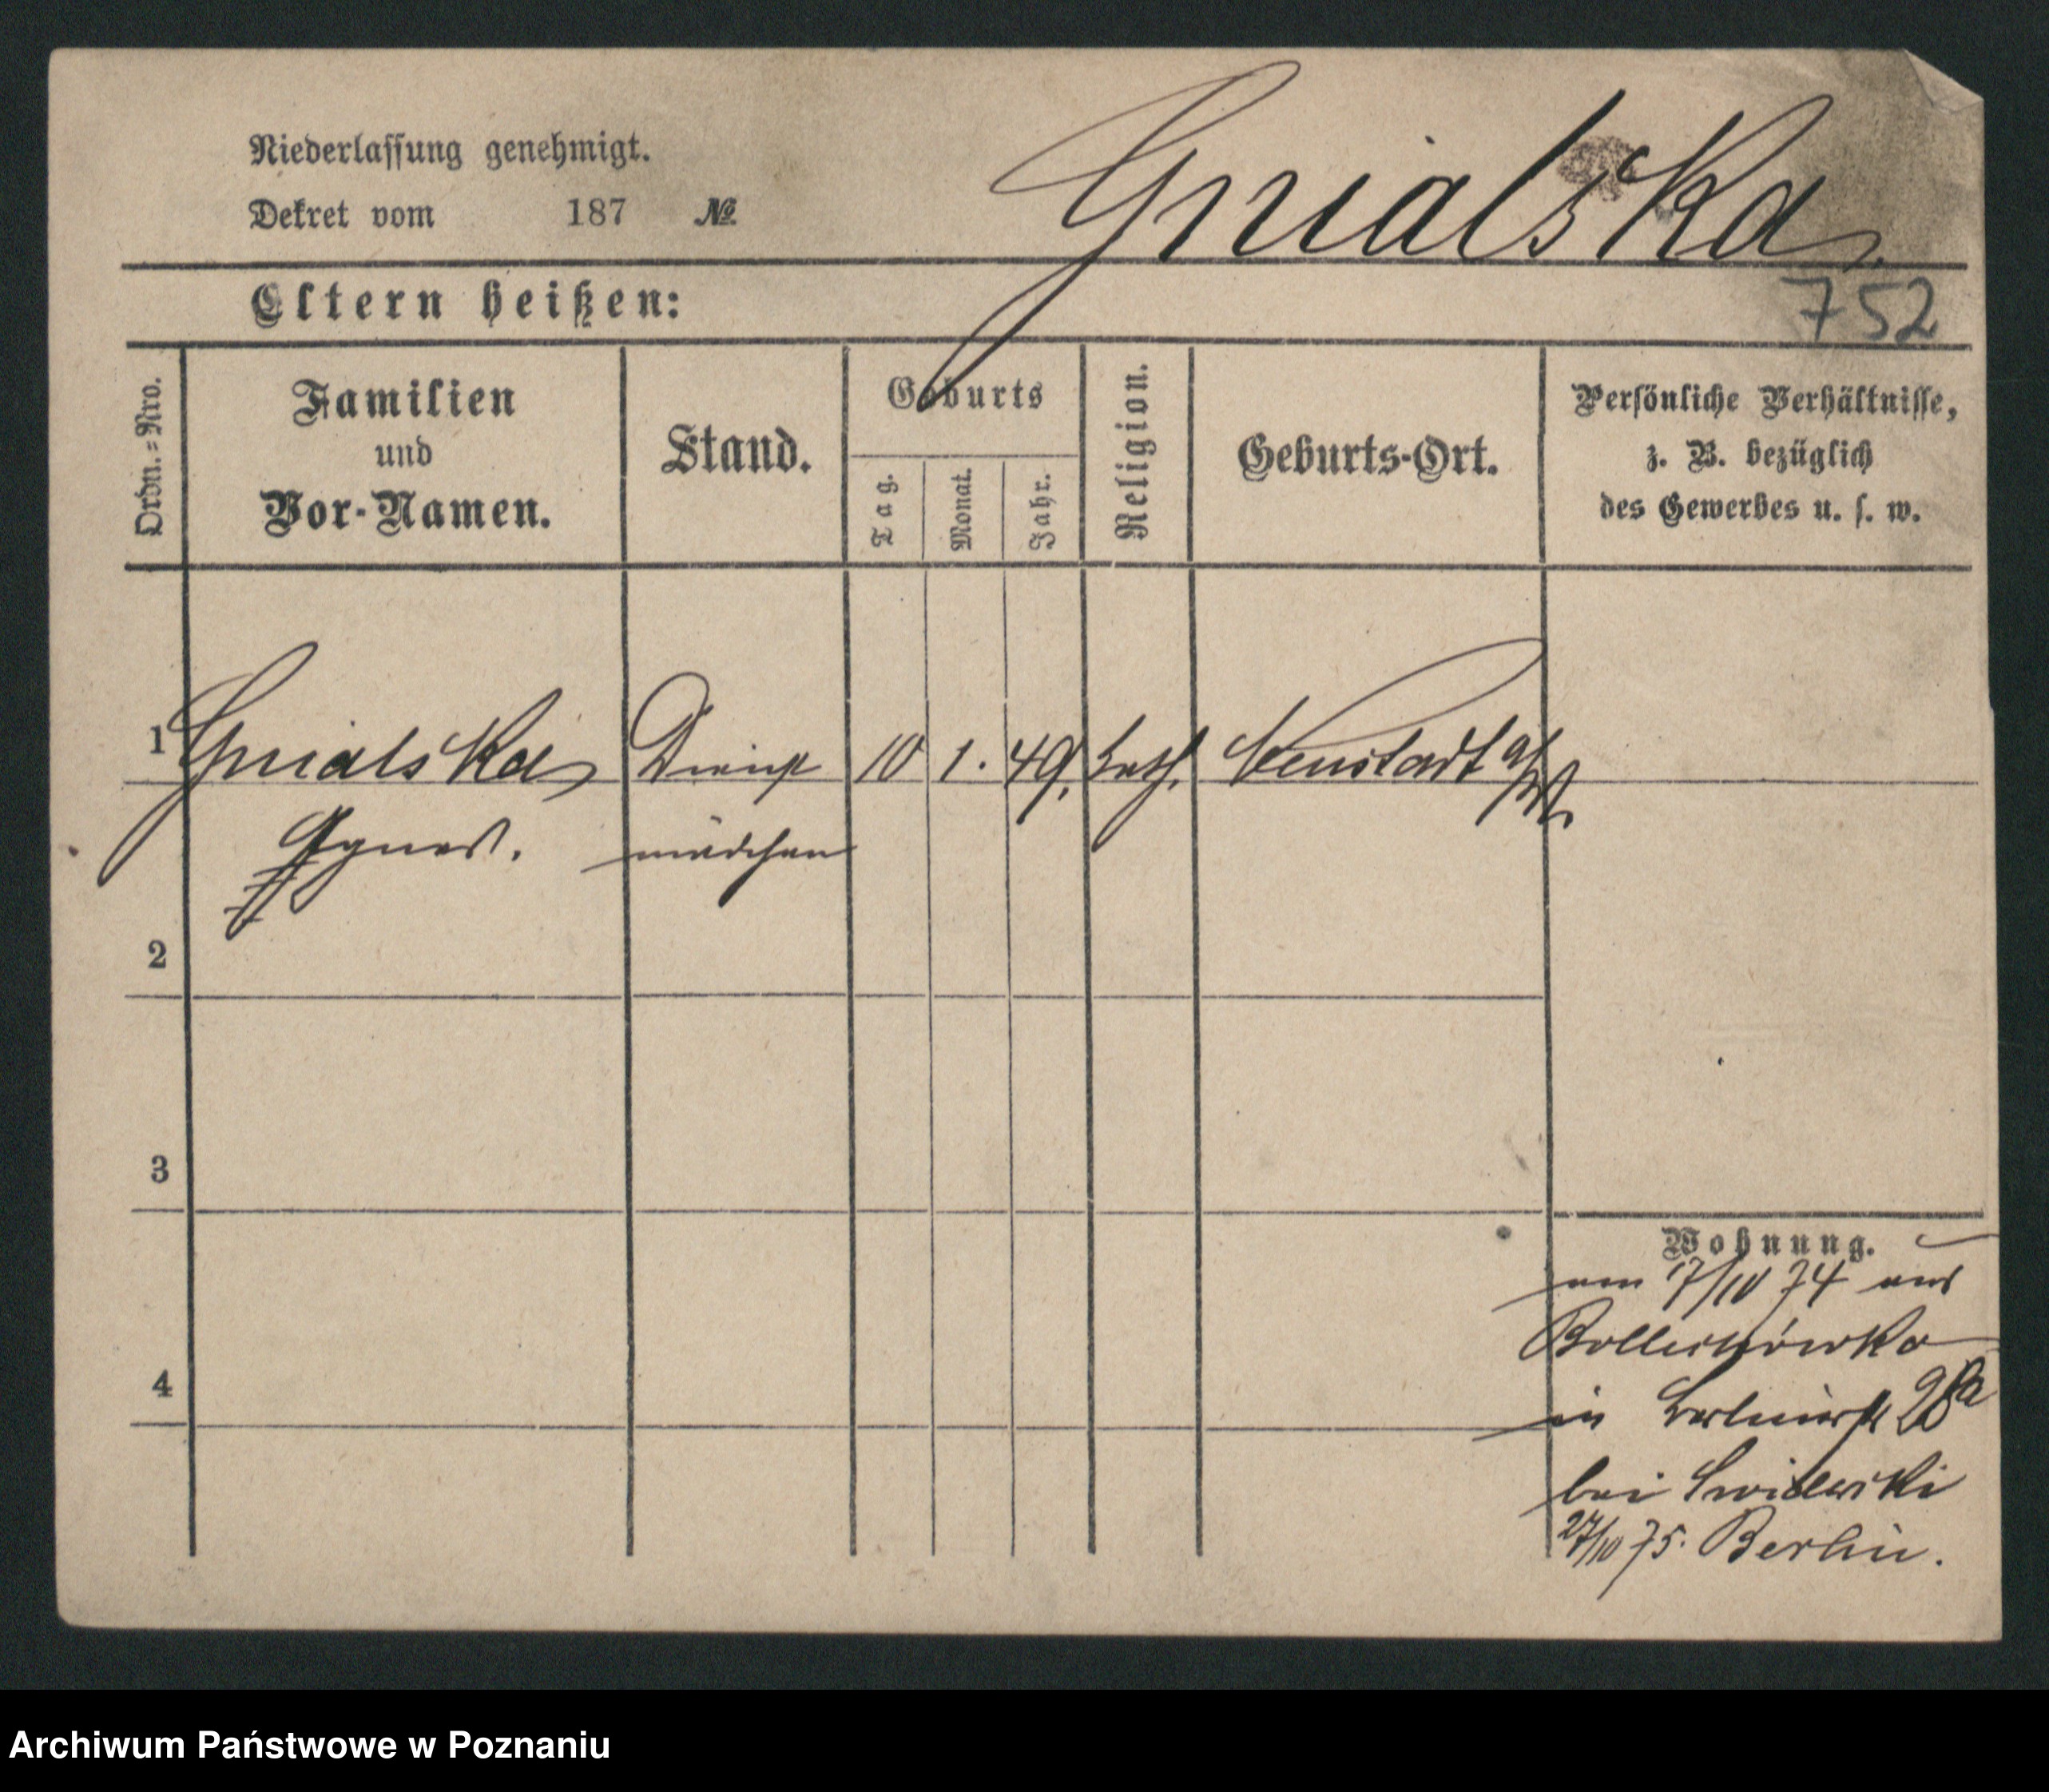 Niederlassung genehmigt.
Dekret vom 187 №
Gnialska
Eltern heißen:
752
Ordn.=Nro.
Familien
und
Vor-Namen.
Stand.
Geburts
Tag.
Monat.
Jahr.
Religion.
Geburts-Ort.
Persönliche Verhältnisse,
z. B. bezüglich
des Gewerbes u. s. w.
1 Gnialska Dienst 10 1. 49. kath. Neustadt a/W.
Agnes. mädchen
2
3
4
Wohnung.
am 7/10 74 aus
in 28a
bei
27/10 75. Berlin.
Archiwum Państwowe w Poznaniu